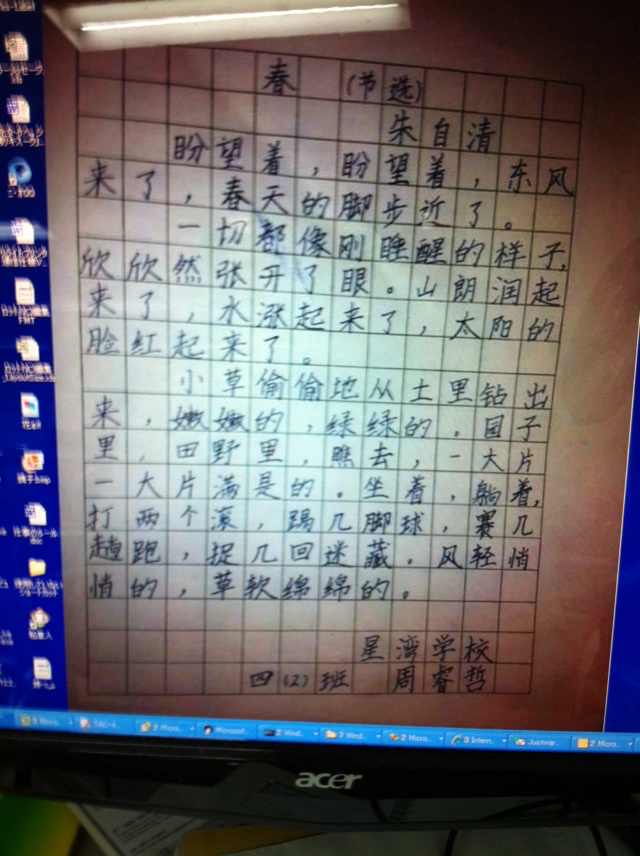 春 (节选)
朱自清
盼望着，盼望着，东风
来了，春天的脚步近了。
一切都像刚睡醒的样子,
欣欣然张开了眼。山朗润起
来了 水涨起来了，太阳的
脸红起来了。
小草偷偷地从土里钻出
来，嫩嫩的，绿绿的，园子
里，田野里，瞧去，一大片
一大片满是的。坐着，躺着,
打两个滚，踢几脚球，赛几
趟跑，捉几回迷藏。风轻悄
悄的，草软绵绵的。
星湾学校
四(2)班 周睿哲
acer